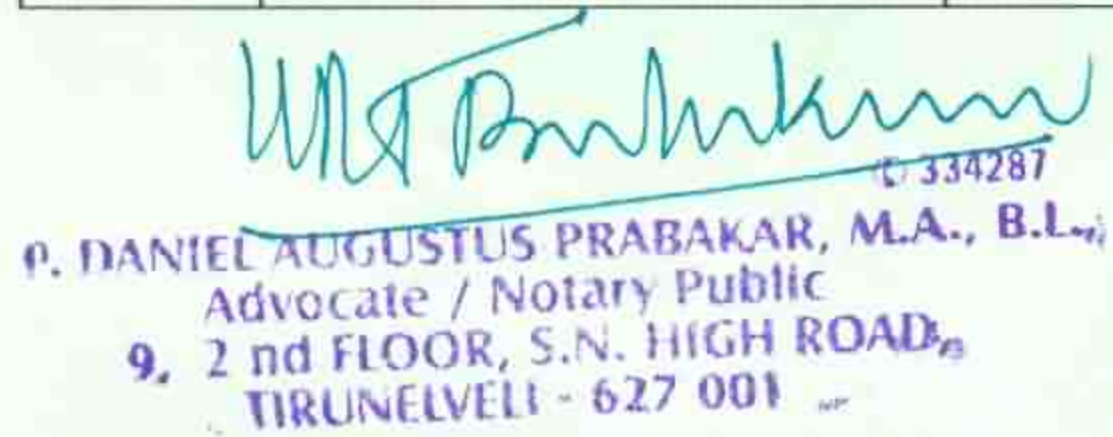 ✆ 334287
P. DANIEL AUGUSTUS PRABAKAR, M.A., B.L.,
Advocate / Notary Public
9, 2 nd FLOOR, S.N. HIGH ROAD,
TIRUNELVELI - 627 001